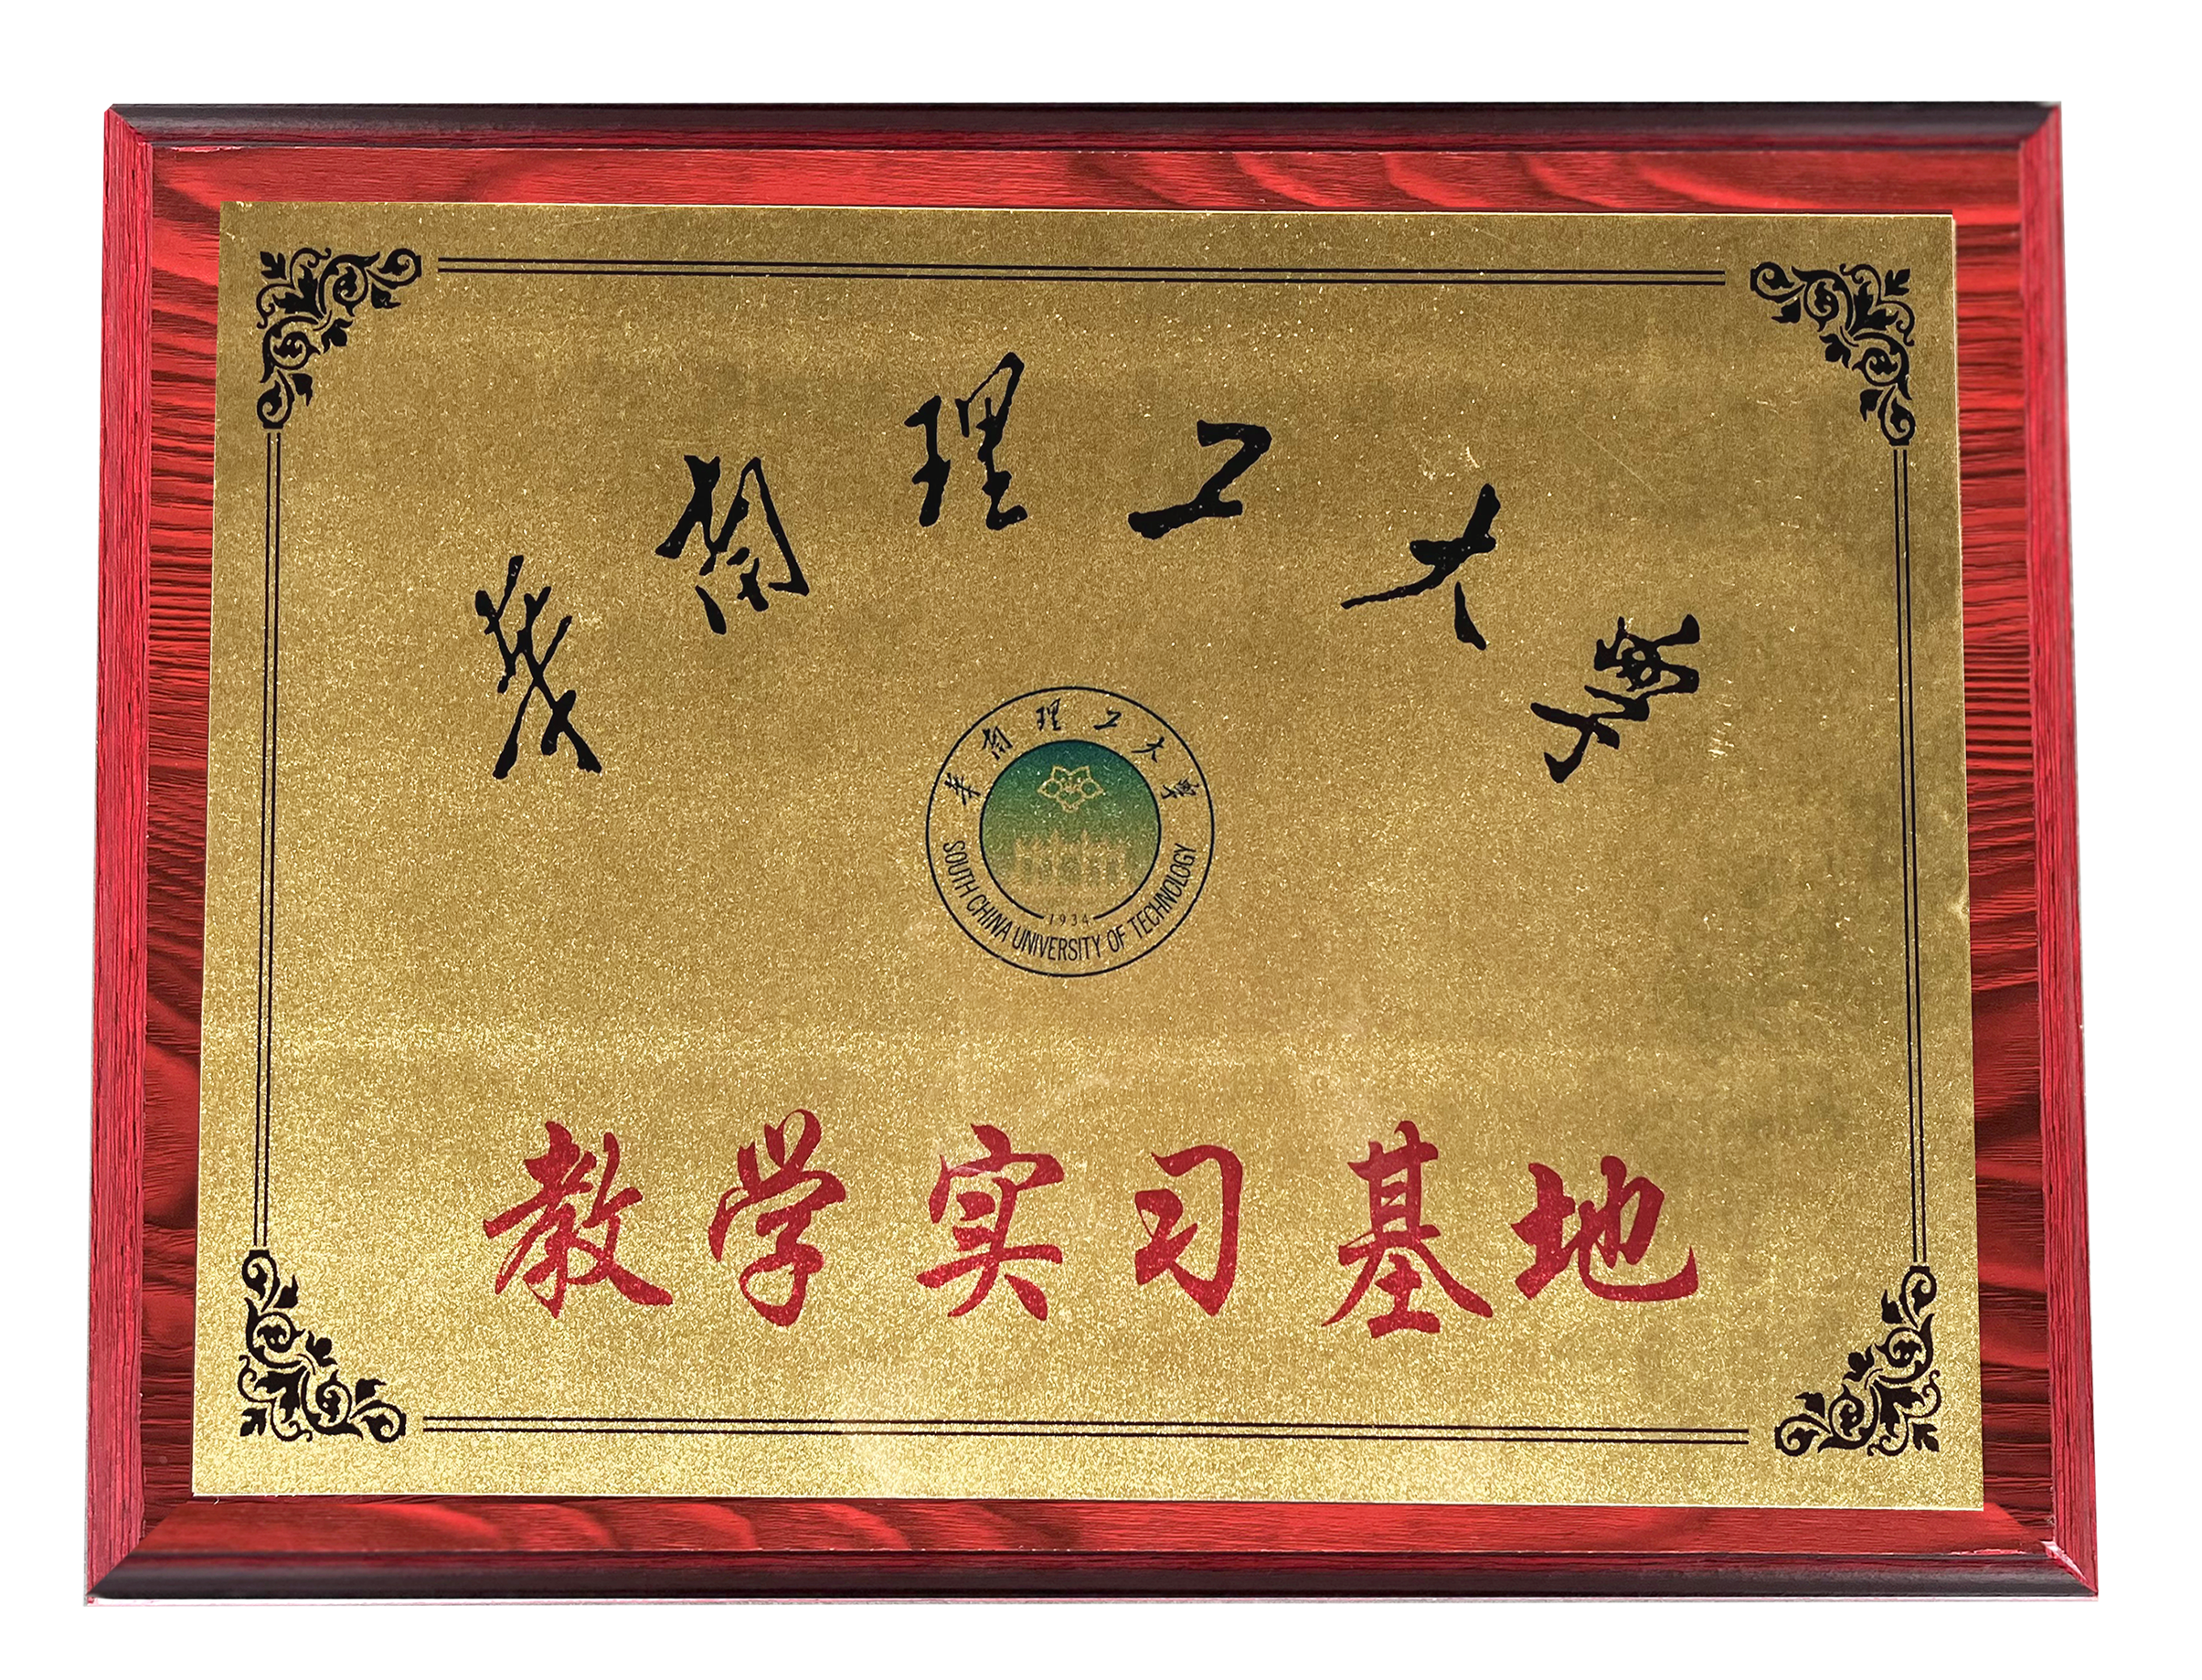 华南理工大學
华南理工大學
1934
SOUTH CHINA UNIVERSITY OF TECHNOLOGY
教学实习基地